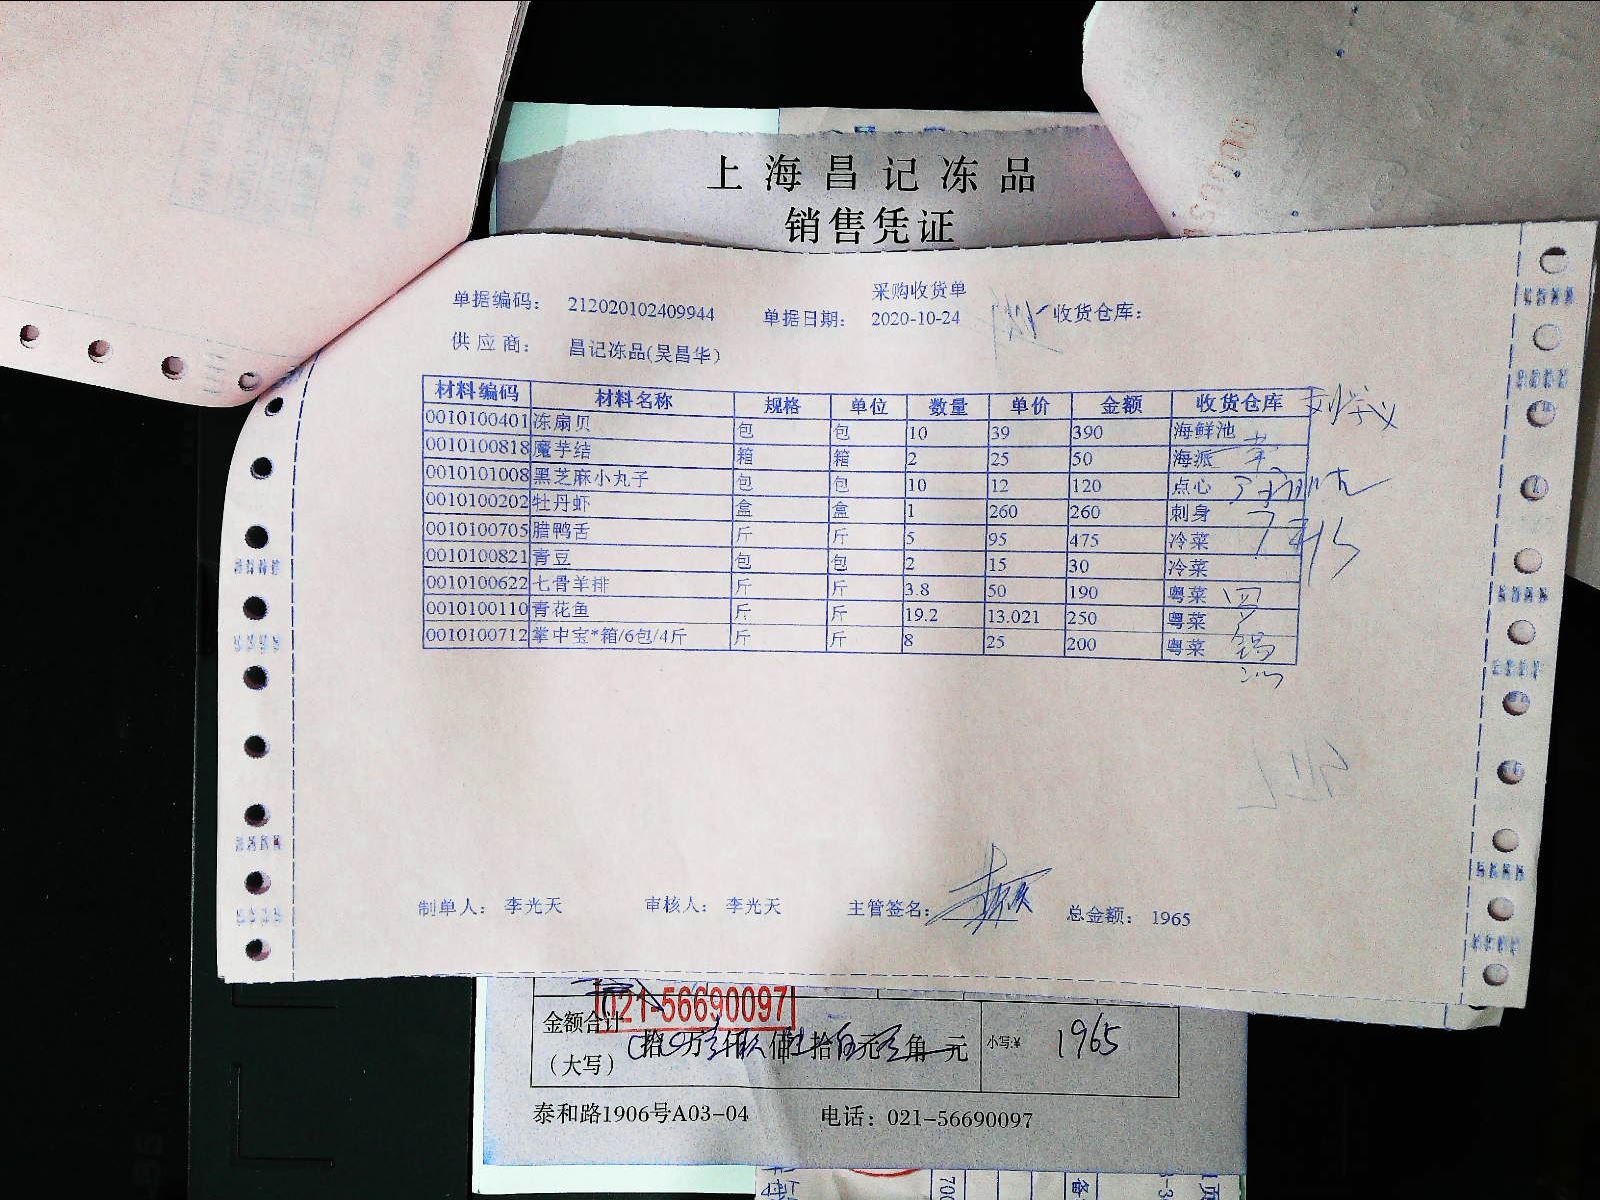 上海昌记冻品
销售凭证
采购收货单
单据编码： 212020102409944 单据日期： 2020-10-24 收货仓库：
供应商： 昌记冻品(吴昌华)
材料编码 材料名称 规格 单位 数量 单价 金额 收货仓库
0010100401 冻扇贝 包 包 10 39 390 海鲜池
0010100818 魔芋结 箱 箱 2 25 50 海派
0010101008 黑芝麻小丸子 包 包 10 12 120 点心
0010100202 牡丹虾 盒 盒 1 260 260 刺身
0010100705 腊鸭舌 斤 斤 5 95 475 冷菜
0010100821 青豆 包 包 2 15 30 冷菜
0010100622 七骨羊排 斤 斤 3.8 50 190 粤菜
0010100110 青花鱼 斤 斤 19.2 13.021 250 粤菜
0010100712 掌中宝*箱/6包/4斤 斤 斤 8 25 200 粤菜
制单人： 李光天 审核人： 李光天 主管签名： 总金额： 1965
021-56690097
金额合计
（大写） 拾 万 仟 佰 拾 元 角 元 小写:¥ 1965
泰和路1906号A03-04 电话：021-56690097